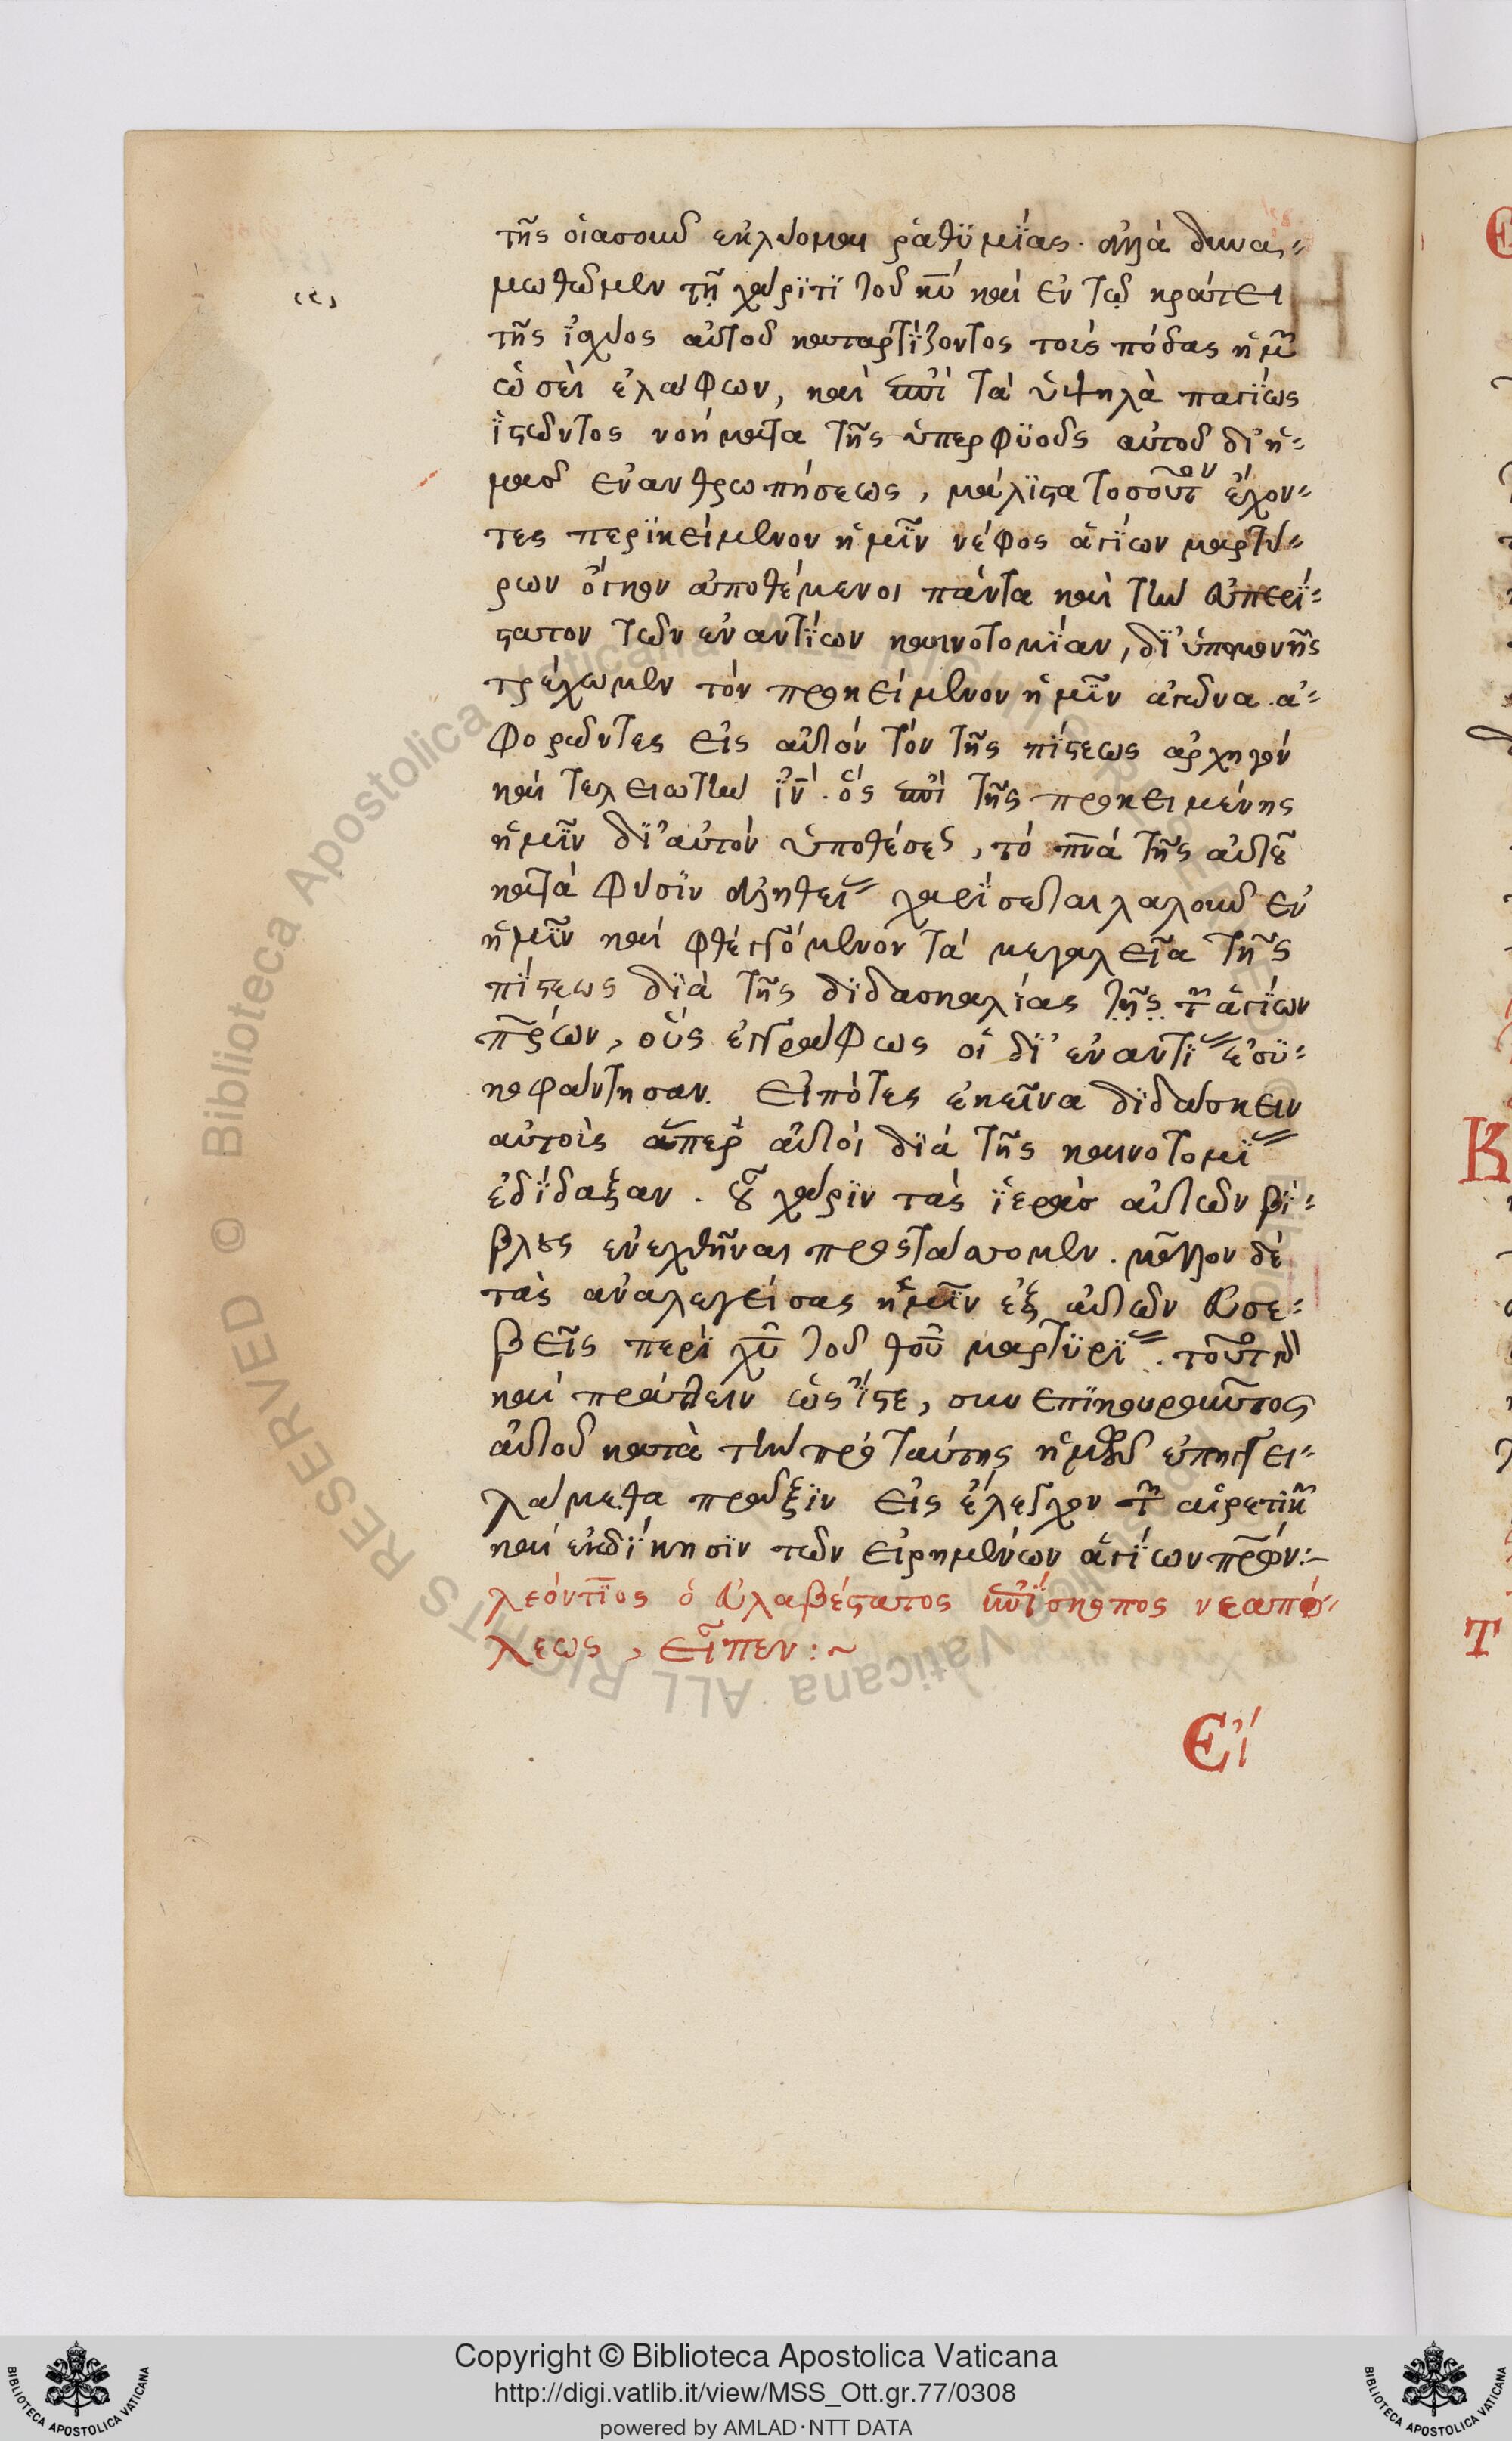 τῆς οἱασοῦν ἐκλύομεν ῥαθυμίας. ἀλλὰ δυνα-
μωθῶμεν τῇ χάριτι τοῦ κυ καὶ ἐν τῷ κράτει
τῆς ἰσχύος αὐτοῦ καταρτίζοντος τοὺς πόδας ἡμῶν
ὡσεὶ ἐλάφων, καὶ ἐπὶ τὰ ὑψηλὰ παγίως
ἱστῶντος νοήματα τῆς ὑπερφυοῦς αὐτοῦ δι' ἡ-
μᾶς ἐνανθρωπήσεως, μάλιστα τοσοῦτον ἔχον-
τες περικείμενον ἡμῖν νέφος ἁγίων μαρτύ-
ρων ὄγκον ἀποθέμενοι πάντα καὶ τὴν εὐπερί-
στατον τῶν ἐναντίων καινοτομίαν, δι' ὑπομονῆς
τρέχωμεν τὸν προκείμενον ἡμῖν ἀγῶνα. ἀ-
φορῶντες εἰς αὐτὸν τὸν τῆς πίστεως ἀρχηγὸν
καὶ τελειωτὴν ιν. ὃς ἐπὶ τῆς προκειμένης
ἡμῖν δι' αὐτὸν ὑποθέσεως, τὸ πνα τῆς αὐτοῦ
κατὰ φύσιν ἀληθείας χαρίσεται λαλοῦν ἐν
ἡμῖν καὶ φθεγγόμενον τὰ μεγαλεῖα τῆς
πίστεως διὰ τῆς διδασκαλίας τῆς τῶν ἁγίων
πρων, οὓς ἐγγράφως οἱ δι' ἐναντίας ἐσυ-
κοφάντησαν. εἰπόντες ἐκεῖνα διδάσκειν
αὐτοὺς ἅπερ αὐτοὶ διὰ τῆς καινοτομίας
ἐδίδαξαν. οὗ χάριν τὰς ἱερὰς αὐτῶν βί-
βλους ἐνεχθῆναι προστάττομεν. μᾶλλον δὲ
τὰς ἀναλεγείσας ἡμῖν ἐξ αὐτῶν εὐσε-
βεῖς περὶ χυ τοῦ θυ μαρτυρίας. τοῦτο γὰρ
καὶ πράττειν ὡς ἴστε, συνεπικουροῦντος
αὐτοῦ κατὰ τὴν πρὸ ταύτης ἡμῶν ἐπηγγει-
λάμεθα πρᾶξιν εἰς ἔλεγχον τῶν αἱρετικῶν
καὶ ἐκδίκησιν τῶν εἰρημένων ἁγίων πρων:-
λεόντιος ὁ εὐλαβέστατος ἐπίσκοπος νεαπό-
λεως, εἶπεν:~
Εἰ
Copyright © Biblioteca Apostolica Vaticana
http://digi.vatlib.it/view/MSS_Ott.gr.77/0308
powered by AMLAD·NTT DATA